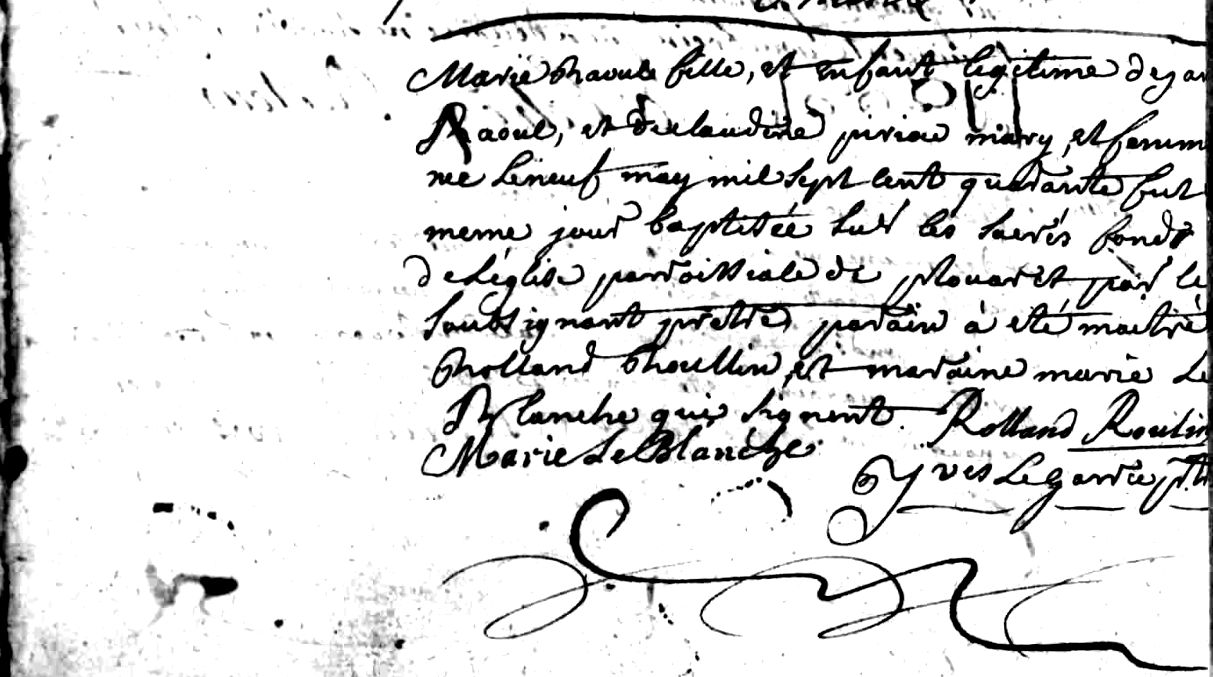 Marie Raoule fille, et enfant legitime de jar
Raoul, et de claudine piriou mary, et femm
nee le neuf may mil sept cent quarante fut
meme jour baptisée sur les sacrés fonds
de L'église parroissiale de plouaret par le
soubsignant pretre, parain à eté maitre
Rolland Roullin, et maraine marie Le
Blanche qui signent. Rolland Roulin
Marie Le Blanche
Yves Le Garrec ptr